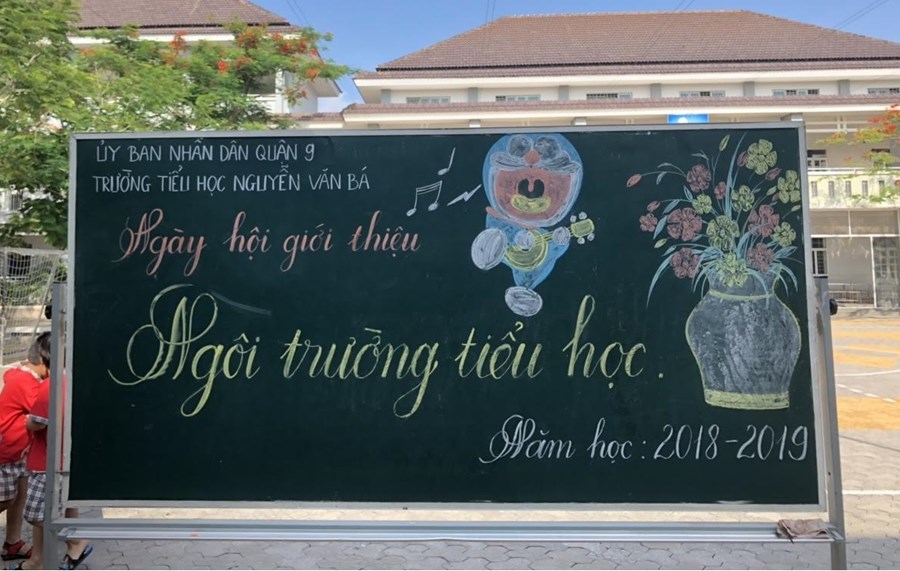 ỦY BAN NHÂN DÂN QUẬN 9
TRƯỜNG TIỂU HỌC NGUYỄN VĂN BÁ
Ngày hội giới thiệu
Ngôi trường tiểu học.
Năm học: 2018-2019